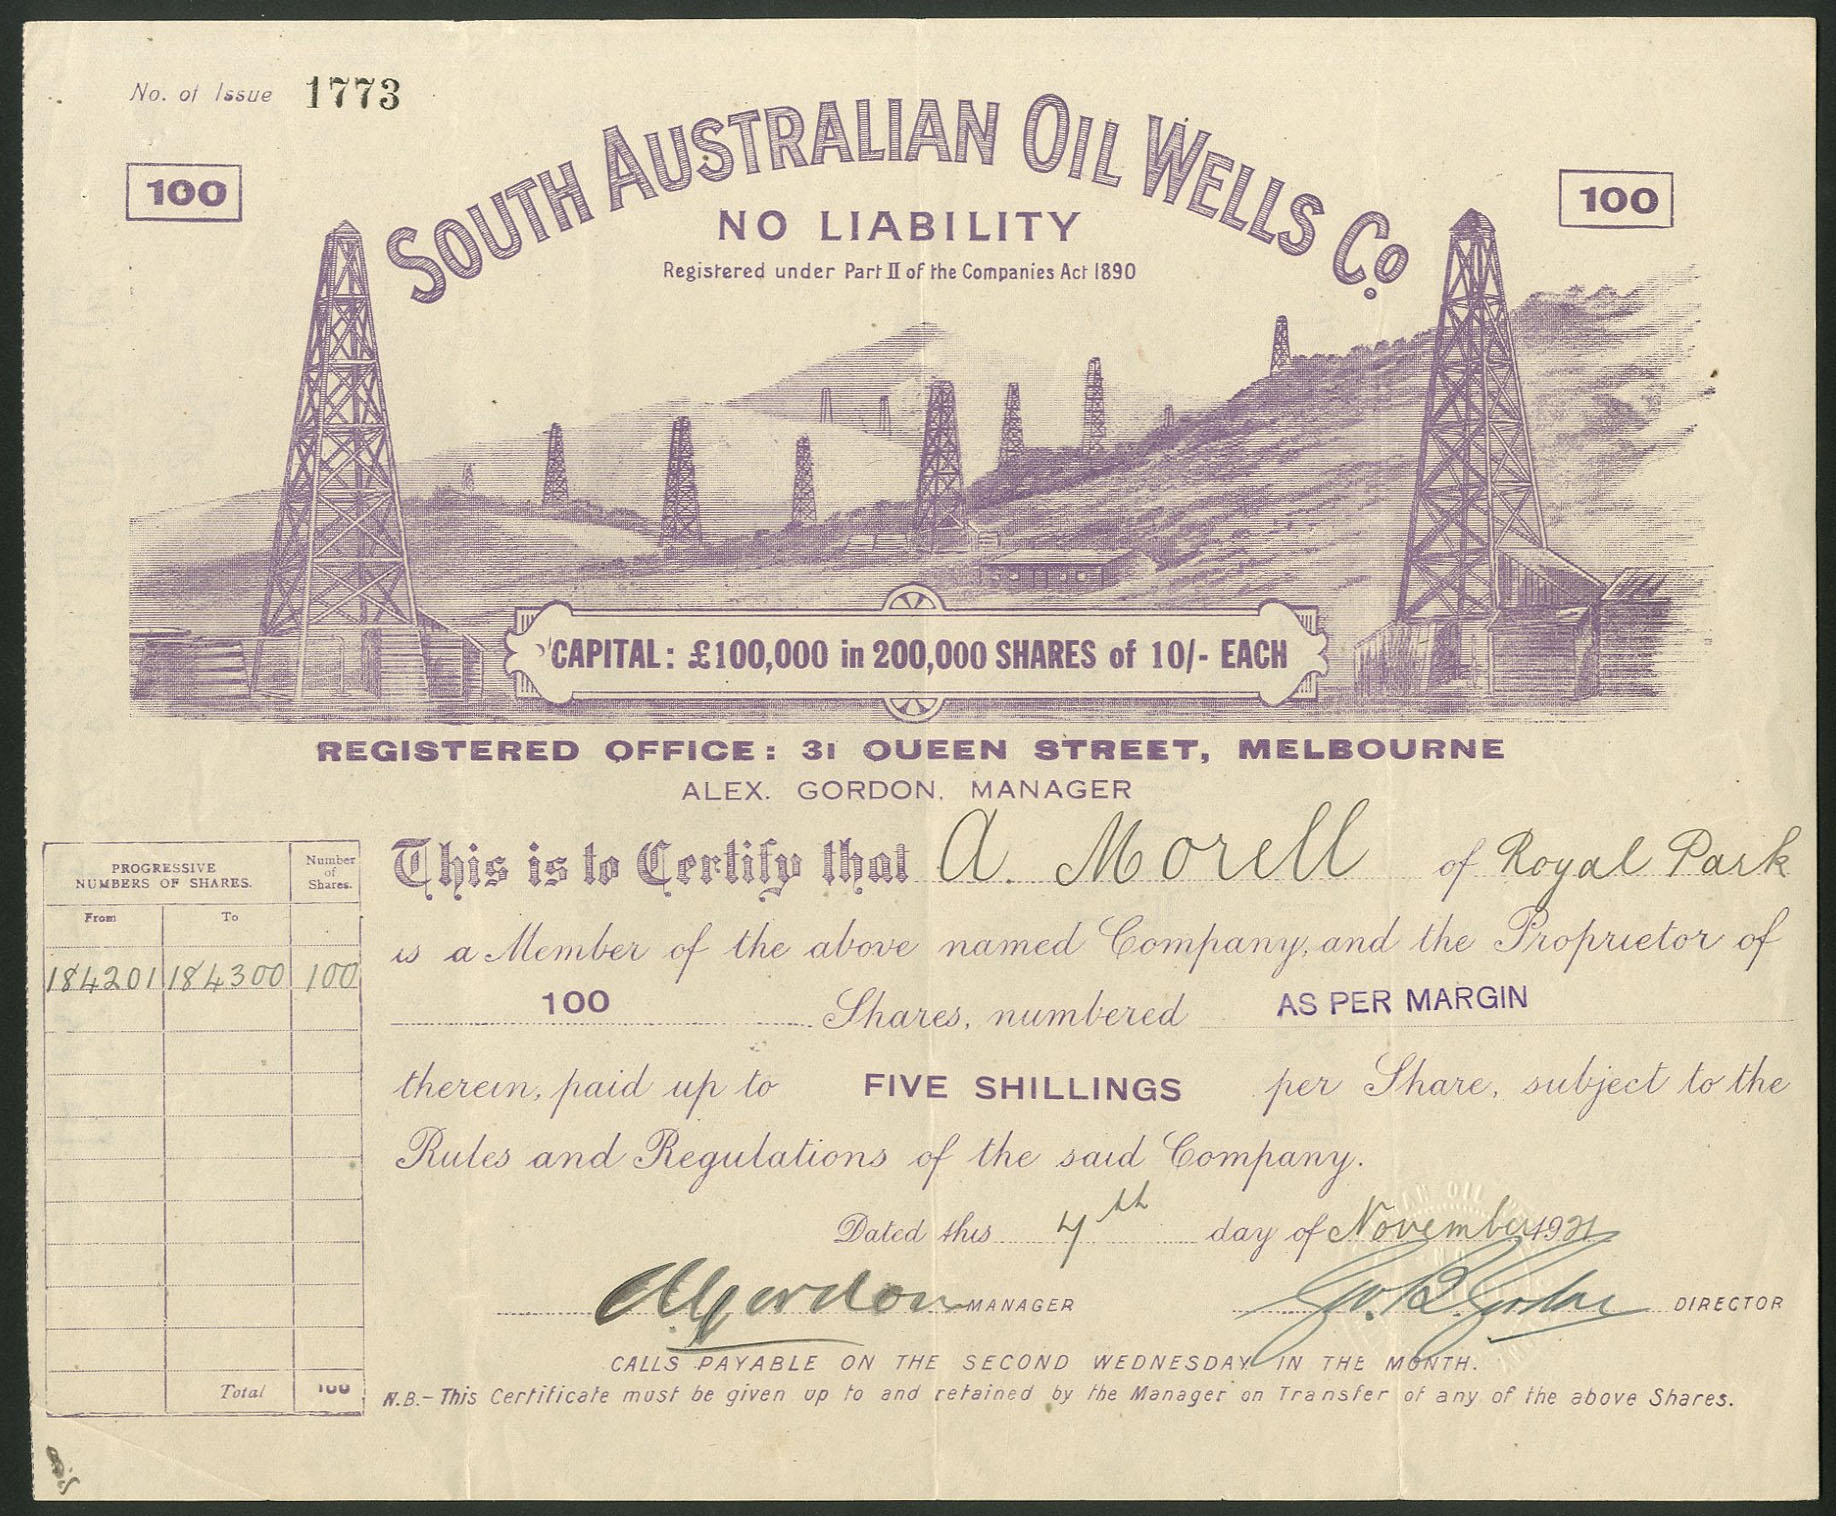 No. of Issue 1773
100
100
SOUTH AUSTRALIAN OIL WELLS Co.
NO LIABILITY
Registered under Part II of the Companies Act 1890
CAPITAL: £100,000 in 200,000 SHARES of 10/- EACH
REGISTERED OFFICE: 31 QUEEN STREET, MELBOURNE
ALEX. GORDON. MANAGER
PROGRESSIVE NUMBERS OF SHARES.
Number of Shares.
From To
184201 184300 100
Total 100
This is to Certify that A. Morell of Royal Park
is a Member of the above named Company, and the Proprietor of
100 Shares, numbered AS PER MARGIN
therein, paid up to FIVE SHILLINGS per Share, subject to the
Rules and Regulations of the said Company.
Dated this 4th day of November 1921
A Gordon MANAGER
DIRECTOR
CALLS PAYABLE ON THE SECOND WEDNESDAY IN THE MONTH.
N.B.- This Certificate must be given up to and retained by the Manager on Transfer of any of the above Shares.